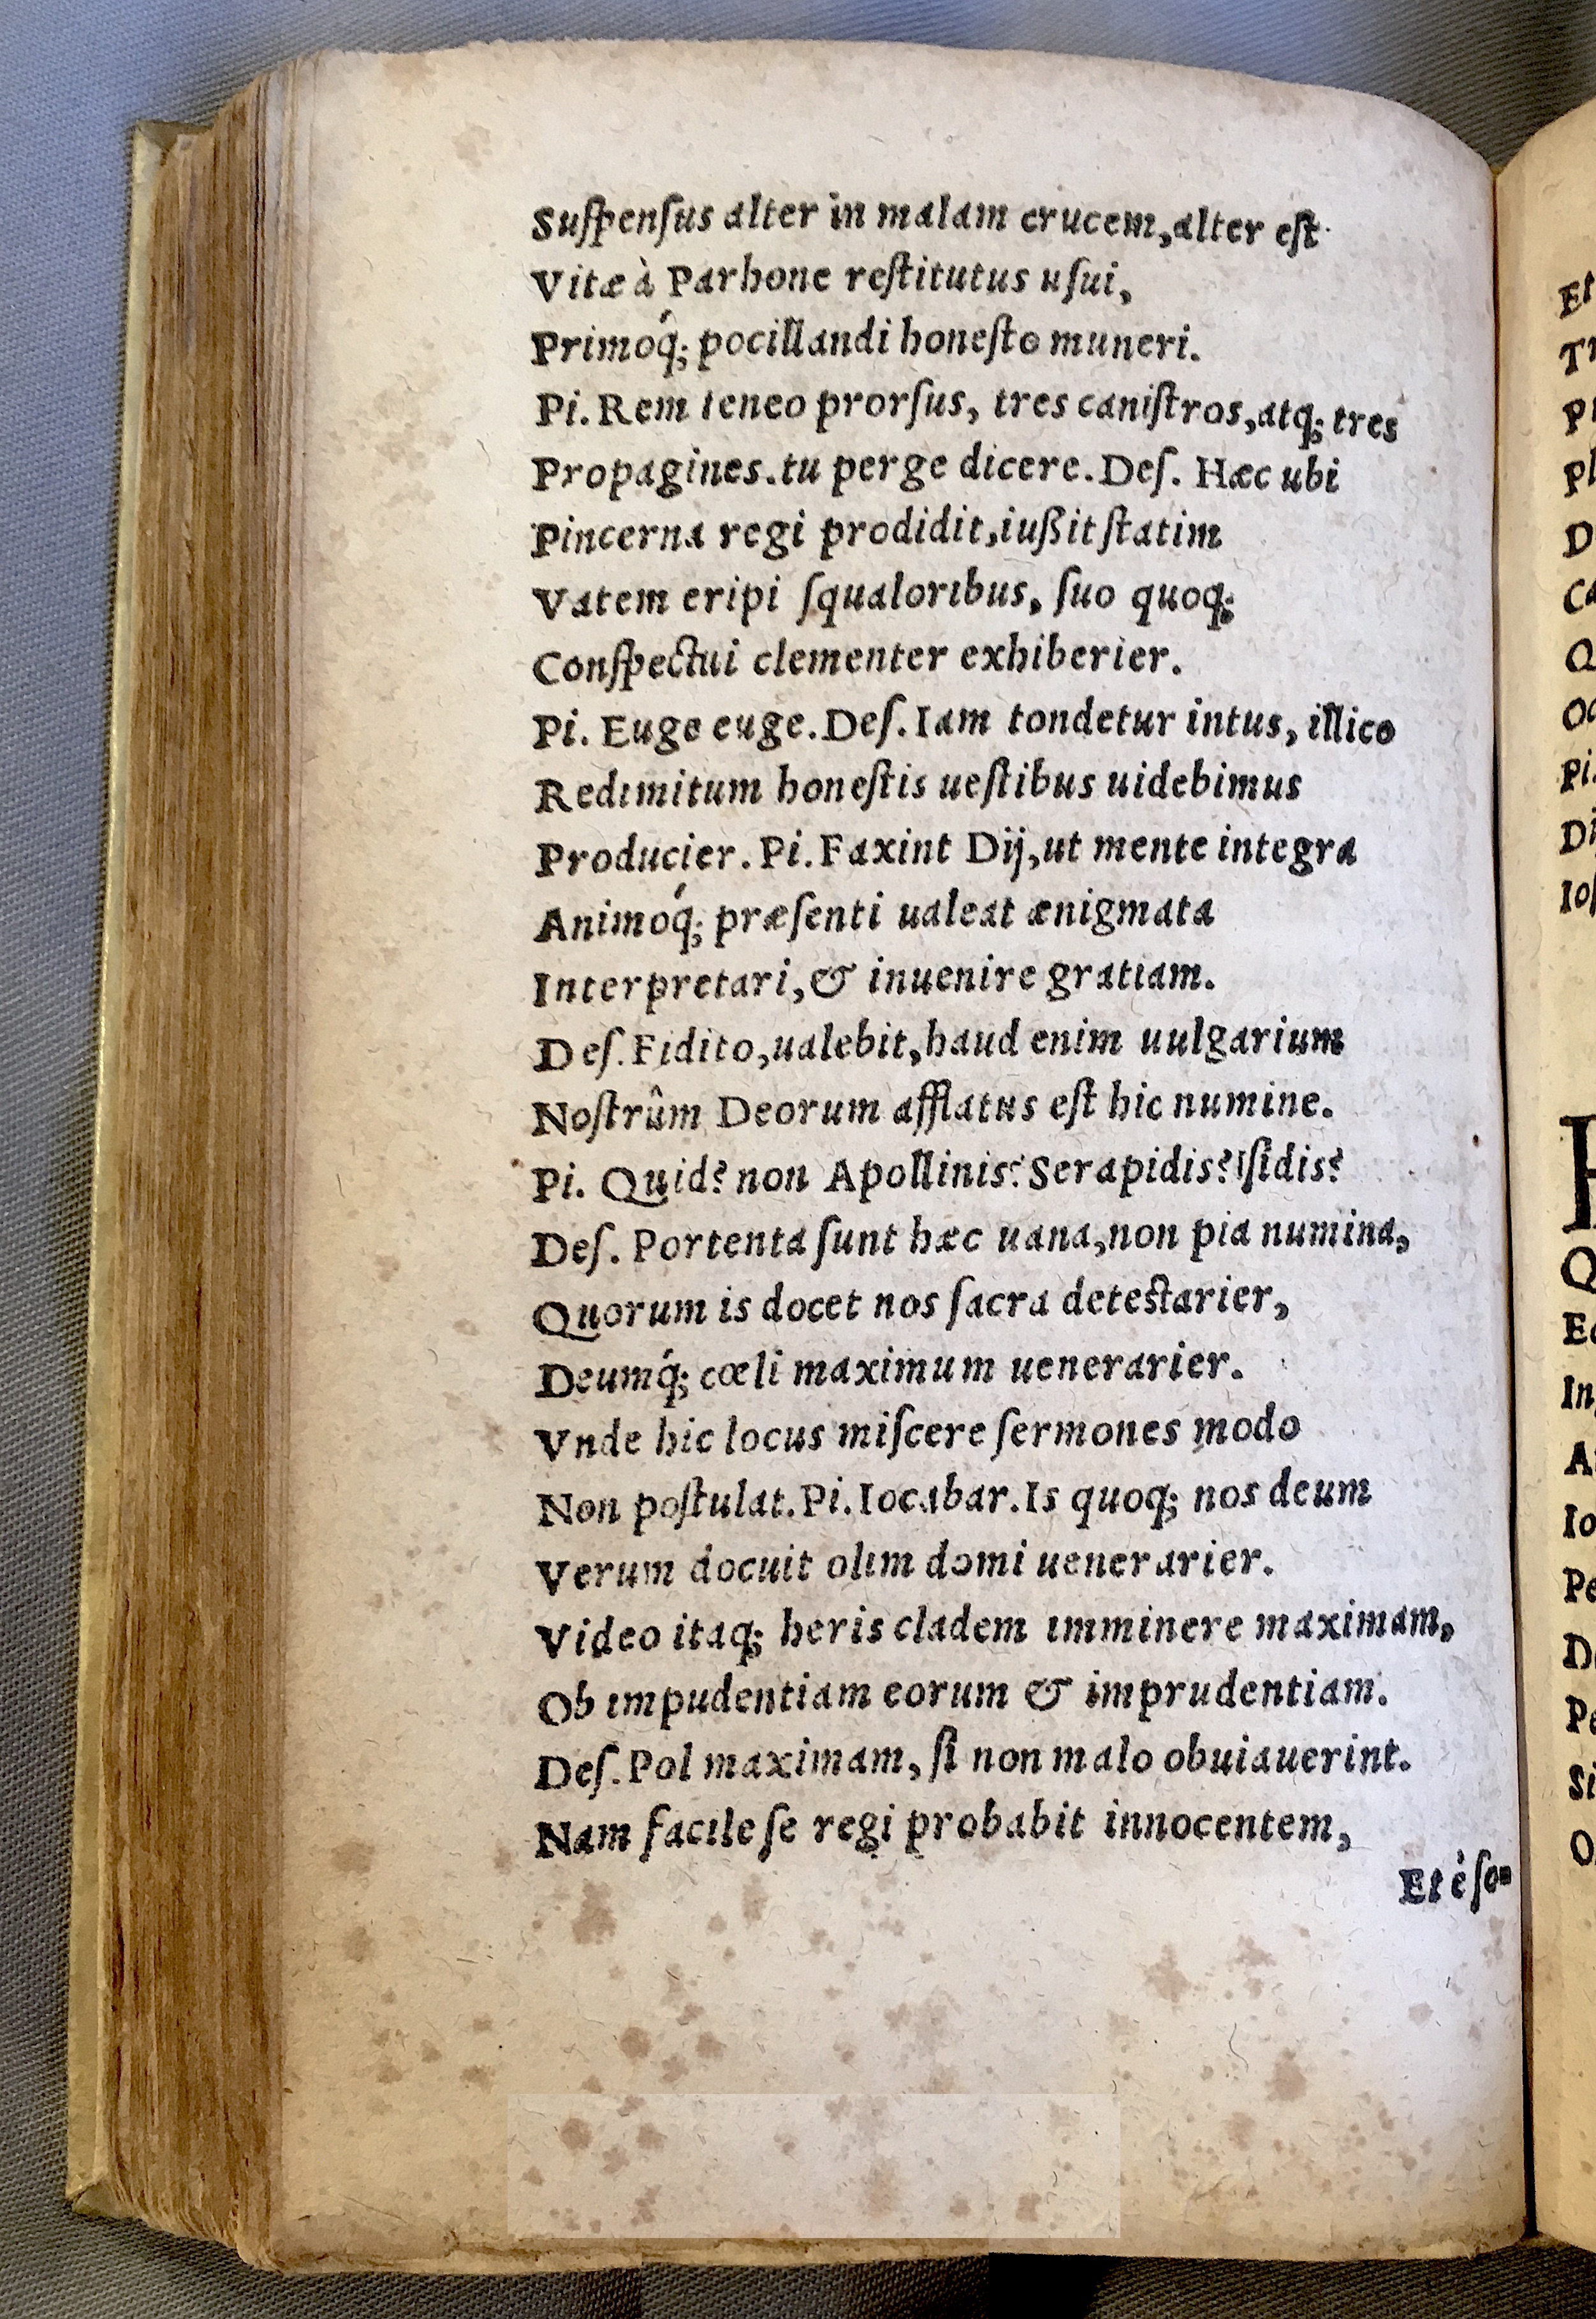 Suſpenſus alter in malam crucem,alter eſt
Vitæ à Parhone reſtitutus uſui,
Primoq́; pocillandi honeſto muneri.
Pi. Rem teneo prorſus, tres caniſtros,atq; tres
Propagines.tu perge dicere.Deſ. Hæc ubi
Pincerna regi prodidit,iußit ſtatim
Vatem eripi ſqualoribus, ſuo quoq;
Conſpectui clementer exhiberier.
Pi. Euge euge.Deſ.Iam tondetur intus, illico
Redimitum honeſtis ueſtibus uidebimus
Producier. Pi.Faxint Dij,ut mente integra
Animoq́; præſenti ualeat ænigmata
Interpretari,& inuenire gratiam.
Deſ.Fidito,ualebit,haud enim uulgarium
Noſtrûm Deorum afflatus eſt hic numine.
Pi. Quid? non Apollinis? Serapidis? Iſidis?
Deſ. Portenta ſunt hæc uana,non pia numina,
Quorum is docet nos ſacra deteſtarier,
Deumq́; cœli maximum uenerarier.
Vnde hic locus miſcere ſermones modo
Non poſtulat.Pi.Iocabar.Is quoq; nos deum
Verum docuit olim domi uenerarier.
Video itaq; heris cladem imminere maximam,
Ob impudentiam eorum & imprudentiam.
Deſ.Pol maximam, ſi non malo obuiauerint.
Nam facile ſe regi probabit innocentem,
Et è ſo-
Et
Pi.
Di
Ioſ